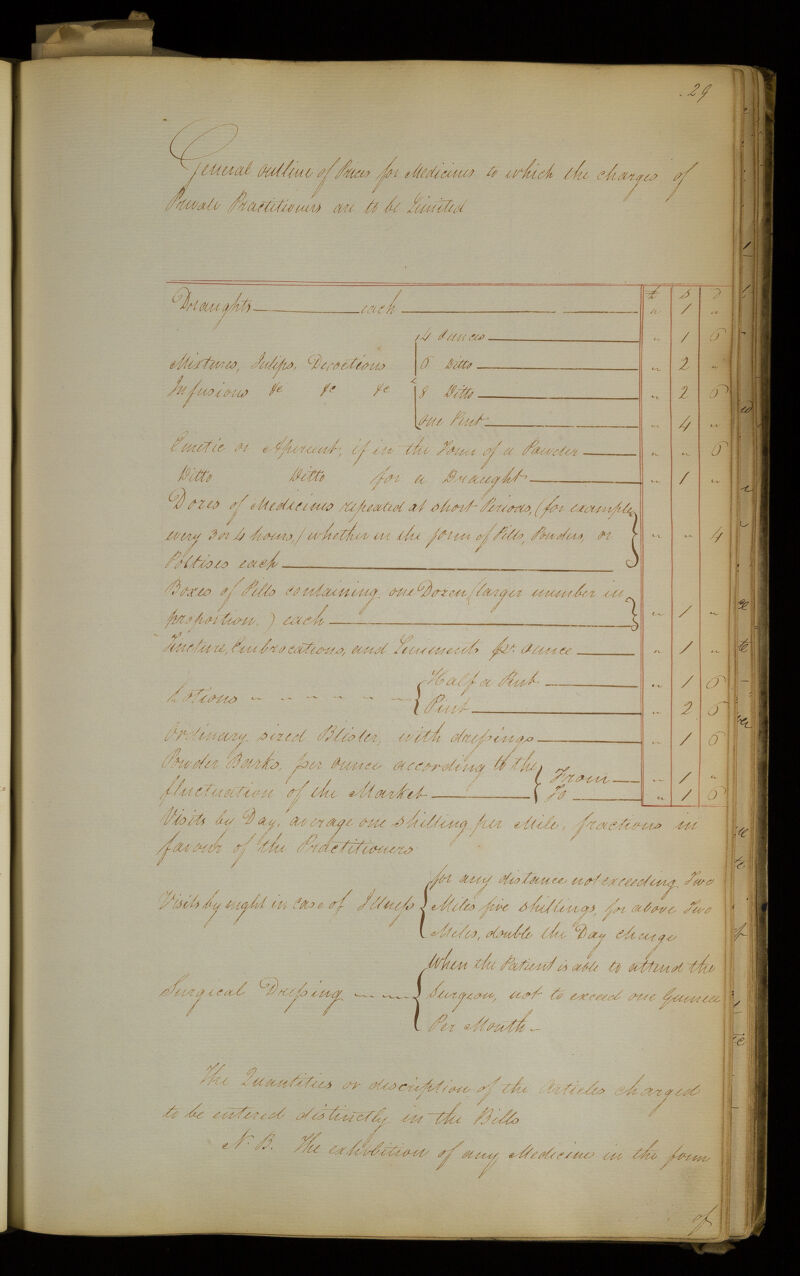 29
General outline of Prices for Medicines to which the charges of
Private Practitioners are to be Limited
£ s d
Draughts each " 1 "
4 ounces " 1 6
Mixtures, Juleps, Decoctions 6 Ditto " 2 "
Infusions &c &c &c 8 Ditto " 2 6
One Pint " 4 "
Emetic or Aperient, if in the Form of a Powder " " 6
Ditto Ditto for a Draught " 1 "
Dozes of Medicines repeated at short Periods, (for example
every 3 or 4 hours,) whether in the form of Pills, Powders, or " " 4
Poltises each
Boxes of Pills containing one Dozen (larger number in
proportion.) each " 1 "
Tincture, Embrocations, and Liniments pr. ounce " 1 "
Half a Pint " 1 6
Lotions
Pint " 2 6
Ordinary sized Blister, with dressings " 1 6
Powder Barks, per ounce according to the From " 1 "
fluctuation of the Market To " 1 6
Visits by Day, average one shilling per Mile, fractions in
favour of the Practitioners
for any distance not exceeding Two
Visits by night in case of Illness Miles five shillings, for above Two
Miles, double the Day charge
When the Patient is able to attend the
Surgical Dressing Surgeon, not to exceed one Guinea
Per Month
The Quantities or discription of the Articles charged
to be entered distinctly in the Bills
N.B. The exhibition of any Medicine in the form
of